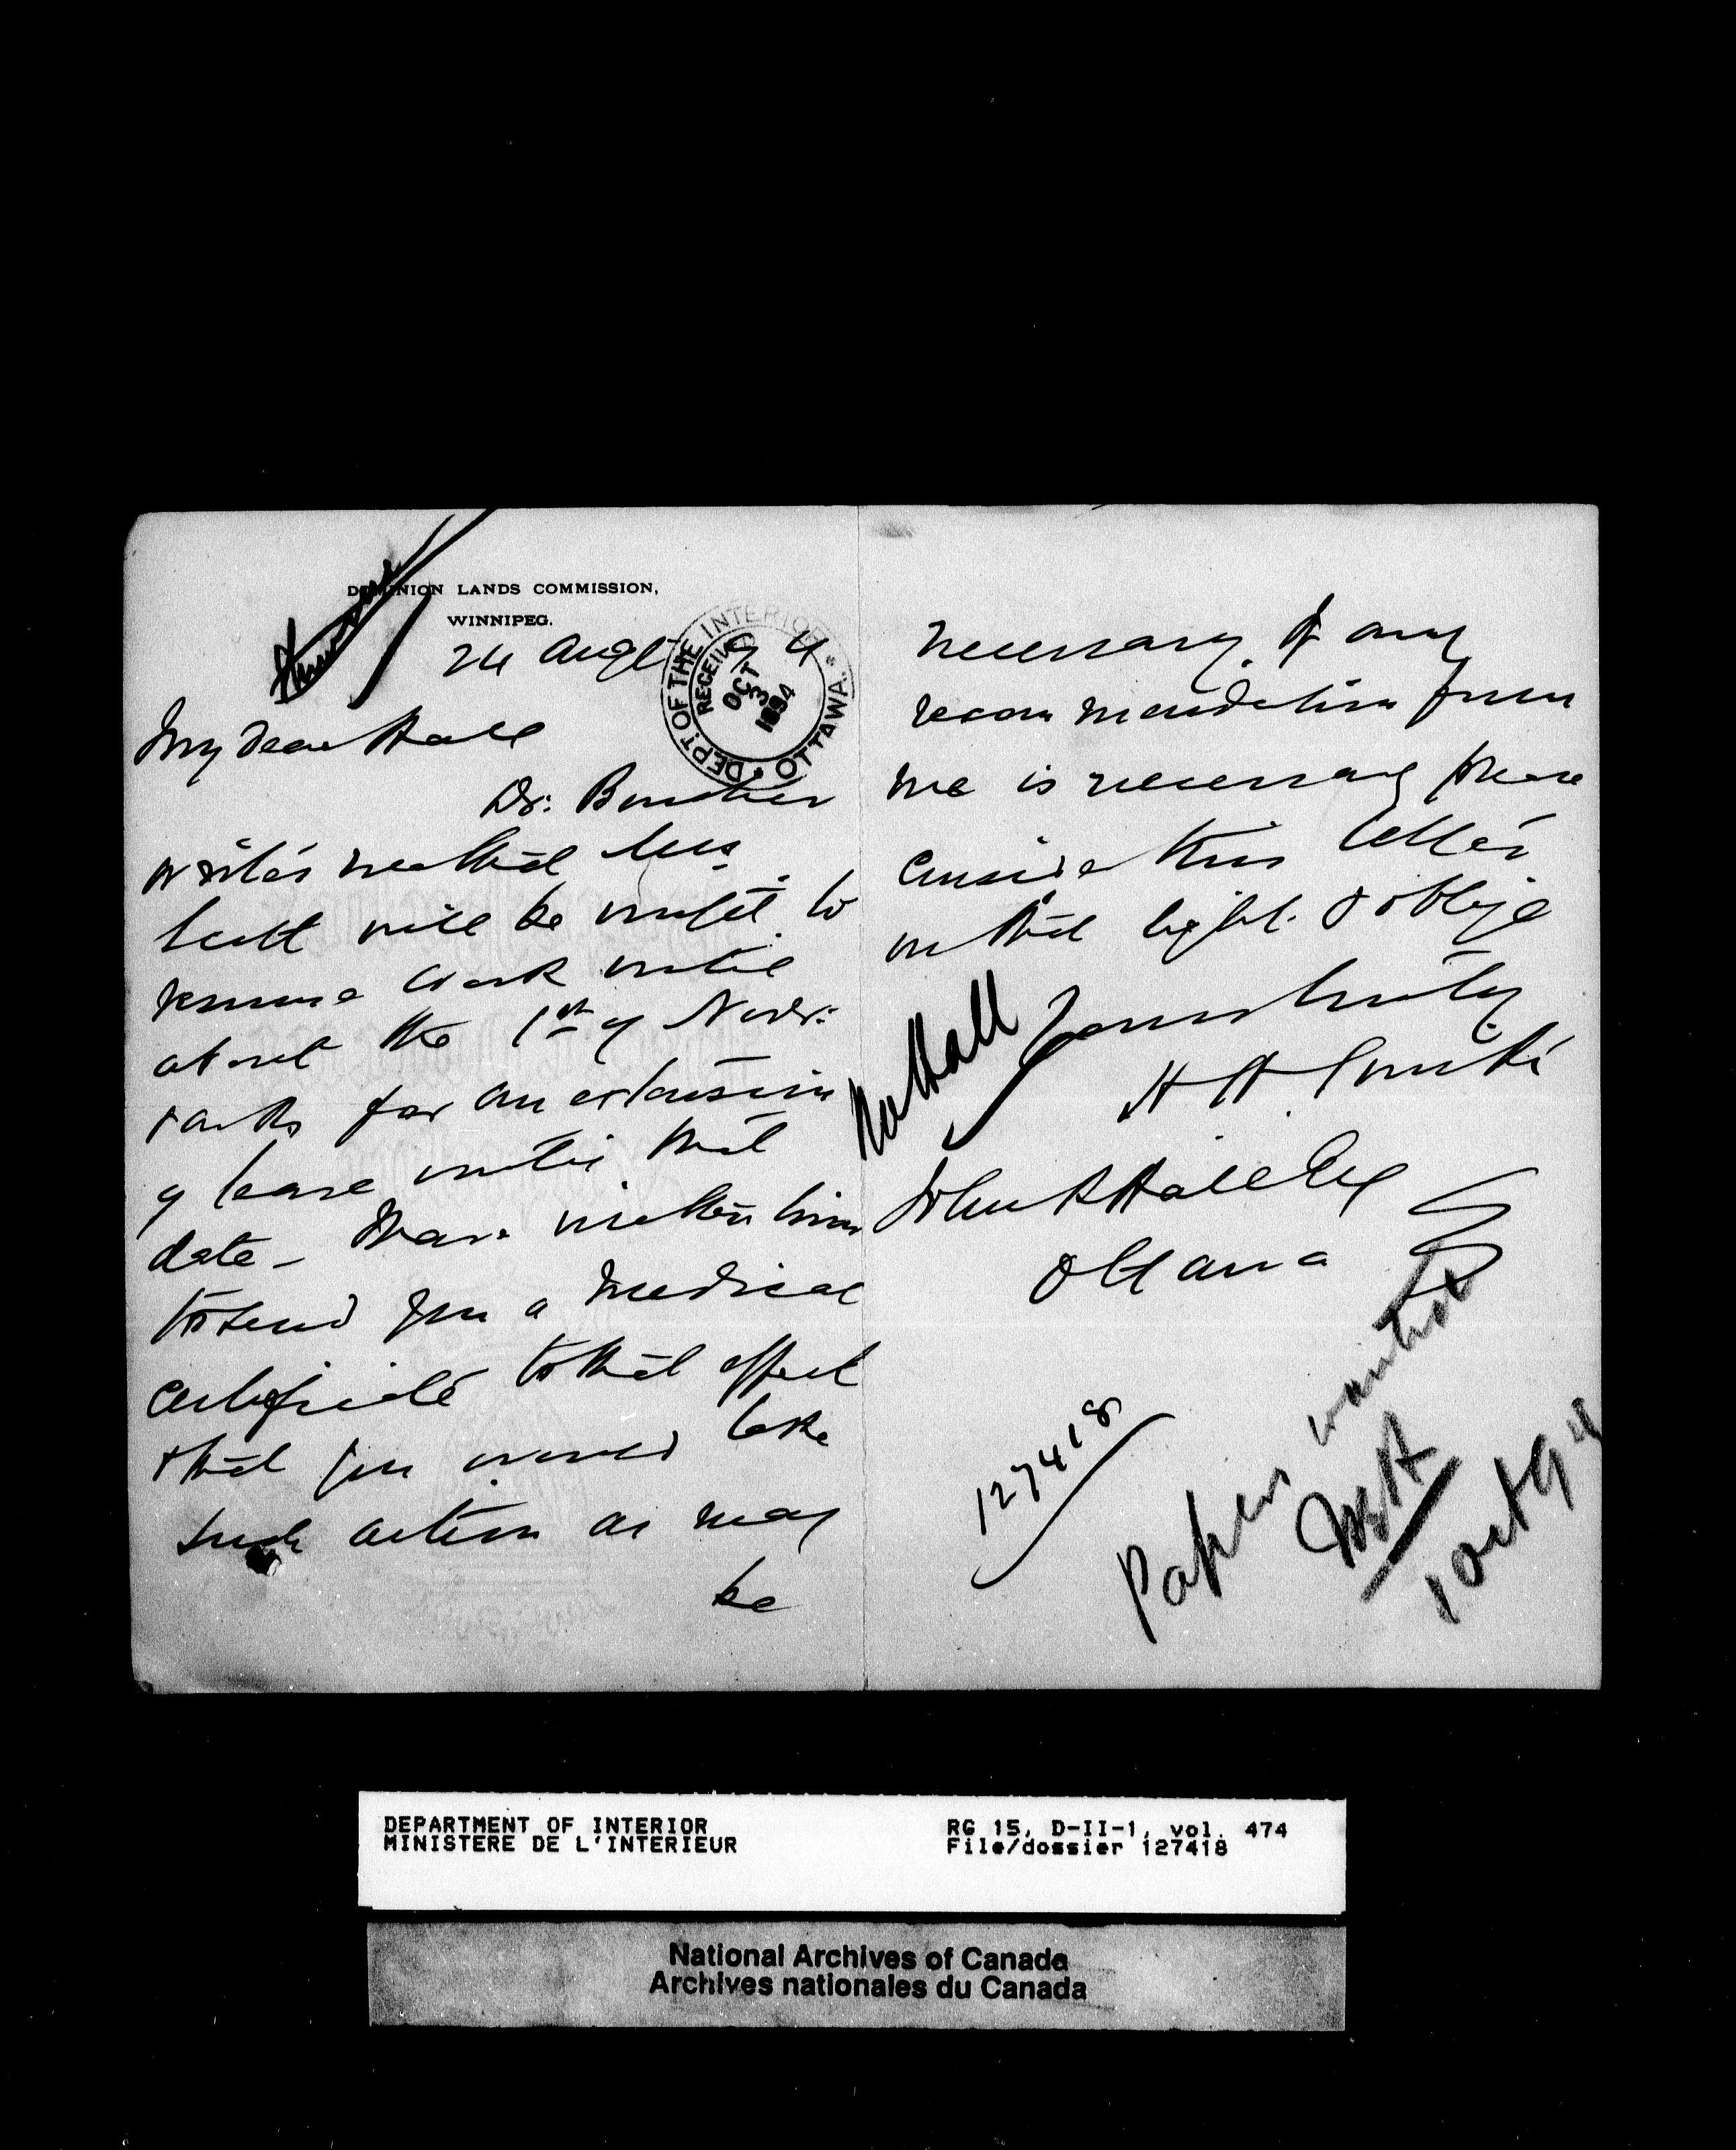 DOMINION LANDS COMMISSION,
WINNIPEG.
24 Augt 94
DEPT. OF THE INTERIOR * OTTAWA.
RECEIVED
OCT
3
1894
My dear Hall
Dr.
writes me that his
will be unfit to
resume work until
about the 1st of Novr:
& asks for an extension
of leave until that
date - I have written him
to send you a medical
certificate to that effect
& that you would take
such action as may
be
necessary. If any
recommendation from
me is necessary please
consider this letter
in that light. & oblige
Yours truly
H H Smith
Mr Hall
John R Hall Esq
Ottawa
127418
Papers wanted
1 Oct 94
DEPARTMENT OF INTERIOR
MINISTERE DE L'INTERIEUR
RG 15, D-II-1, vol. 474
File/dossier 127418
National Archives of Canada
Archives nationales du Canada